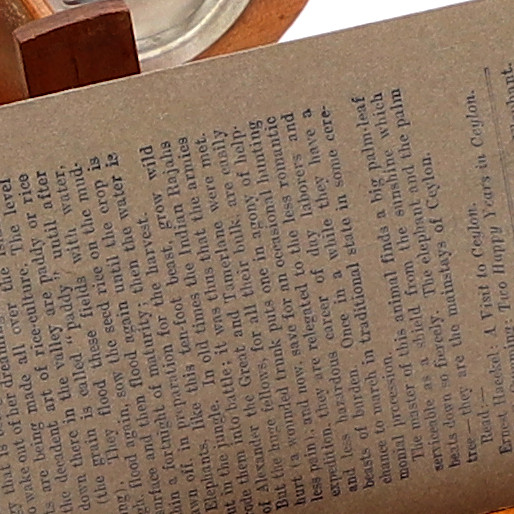 that is
out of her dream
o wake being made all over the is
ts are of rice-culture. The level
the decadent art of paddy or rice
down in the valley are until after
there is called "Paddy" with water,
(the grain flood these fields mud-
They sow the seed rice on the mud-
flood again, until the crop is
flood again then the water is
urface and then then harvest.
a fortnight of maturity; grow wild
in preparation for the beast,
off, in this ten-foot Indian Rejahs
Elephants, like old times the armies
in the jungle. In this that were met.
ode them into battle: it was were easily
of Alexander the Great and Tamerlane are
But the huge fellows, for all their bulk, of help-
a wounded trunk puts one in agony hunting
hurt and now, save for an occasional romantic
less pain), they are relegated to the less and
expedition, hazardous career of day laborers
and less of burden. Once in a while they have a
beasts of march in traditional state in some cere-
chance to
monial procession.
The master of this animal finds a big palm-leaf
serviceable as a shield from the sunshine which
beats down so fiercely. The elephant and the palm
tree—they are the mainstays of Ceylon.
Read:—
Ernst Haeckel: A Visit to Ceylon.
Cumming: Two Happy Years in Ceylon.